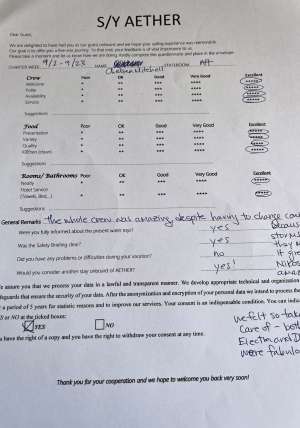 S/Y AETHER
Dear Guest,
We are delighted to have had you as our guest onboard and we hope your sailing experience was memorable.
Our goal is to offer you a five-star journey. To that end, your feedback is of vital importance to us.
Please take a moment and let us know how we are doing. Kindly complete this questionnaire and place in the envelope
CHARTER WEEK: 9/2 - 9/23 NAME STATEROOM Aft
Chelsea Mitchell
Crew Poor OK Good Very Good Excellent
Welcome * ** *** **** *****
Polite * ** *** **** *****
Availability * ** *** **** *****
Service * ** *** **** *****
Suggestions
Food Poor OK Good Very Good Excellent
Presentation * ** *** **** *****
Variety * ** *** **** *****
Quality * ** *** **** *****
Kitchen (clean) * ** *** **** *****
Suggestions
Rooms/ Bathrooms Poor OK Good Very Good Excellent
Ready * ** *** **** *****
Hotel Service * ** *** **** *****
(Towels, Bed,...)
Suggestions
General Remarks the whole crew was amazing despite having to change cou
Were you fully informed about the present week trip? yes
Was the Safety Briefing clear? yes
storms
Did you have any problems or difficulties during your vacation? no
Would you consider another stay onboard of AETHER? yes!
Nikos
e assure you that we process your data in a lawful and transparent manner. We develop appropriate technical and organization
feguards that ensure the security of your data. After the anonymization and encryption of your personal data we intend to process the
a period of 5 years for statistic reasons and to improve our services. Your consent is an indispensable condition. You can indi
S or NO at the ticked boxes:
YES NO
we felt so take
Care of - both
Electra and D
were fabulo
u have the right of a copy and you have the right to withdraw your consent at any time.
Thank you for your cooperation and we hope to welcome you back very soon!